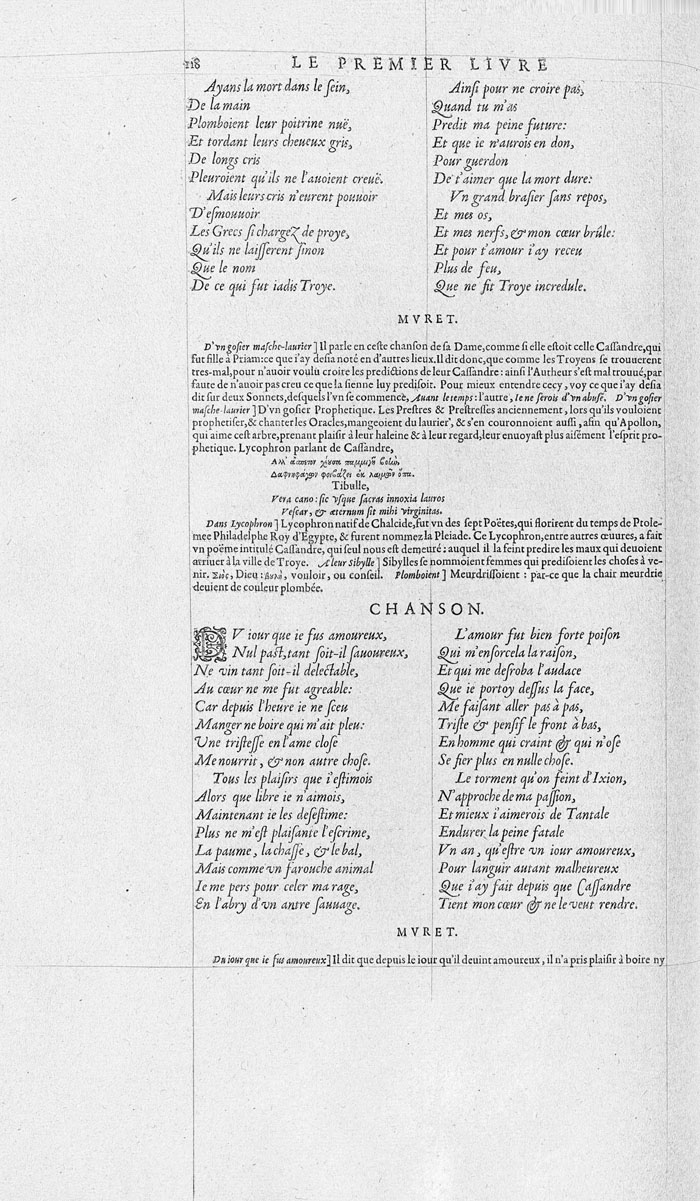 118 LE PREMIER LIVRE
Ayans la mort dans le ſein,
De la main
Plomboient leur poitrine nuë,
Et tordant leurs cheueux gris,
De longs cris
Pleuroient qu'ils ne l'auoient creuë.
Mais leurs cris n'eurent pouuoir
D'eſmouuoir
Les Grecs ſi chargeZ de proye,
Qu'ils ne laiſſerent ſinon
Que le nom
De ce qui fut iadis Troye.
Ainſi pour ne croire pas,
Quand tu m'as
Predit ma peine future:
Et que ie n'aurois en don,
Pour guerdon
De t'aimer que la mort dure:
Vn grand braſier ſans repos,
Et mes os,
Et mes nerfs, & mon cœur brûle:
Et pour t'amour i'ay receu
Plus de feu,
Que ne fit Troye incredule.
MVRET.
D'vn goſier maſche-laurier] Il parle en ceſte chanſon de ſa Dame, comme ſi elle eſtoit celle Caſſandre, qui
fut fille à Priam: ce que i'ay deſia noté en d'autres lieux. Il dit donc, que comme les Troyens ſe trouuerent
tres-mal, pour n'auoir voulu croire les predictions de leur Caſſandre: ainſi l'Autheur s'eſt mal trouué, par
faute de n'auoir pas creu ce que la ſienne luy prediſoit. Pour mieux entendre cecy, voy ce que i'ay deſia
dit sur deux Sonnets, deſquels l'vn ſe commence, Auant le temps: l'autre, Ie ne ſerois d'vn abuſé. D'vn goſier
maſche-laurier] D'vn goſier Prophetique. Les Preſtres & Preſtreſſes anciennement, lors qu'ils vouloient
prophetiſer, & chanter les Oracles, mangeoient du laurier, & s'en couronnoient auſſi, afin qu'Apollon,
qui aime ceſt arbre, prenant plaiſir à leur haleine & à leur regard, leur enuoyaſt plus aiſément l'eſprit pro-
phetique. Lycophron parlant de Caſſandre,
Δαφνηφάγων φοίβαζεν ἐκ λαιμῶν ὄπα.
Tibulle,
Vera cano: ſic vſque ſacras innoxia lauros
Veſcar, & æternum ſit mihi virginitas.
Dans Lycophron] Lycophron natif de Chalcide, fut vn des ſept Poëtes, qui florirent du temps de Ptole-
mee Philadelphe Roy d'Egypte, & furent nommez la Pleiade. Ce Lycophron, entre autres œuures, a fait
vn poëme intitulé Caſſandre, qui ſeul nous eſt demeuré: auquel il la feint predire les maux qui deuoient
arriuer à la ville de Troye. A leur Sibylle] Sibylles ſe nommoient femmes qui prediſoient les choſes à ve-
nir. Σιὸς, Dieu: βυλὴ, vouloir, ou conſeil. Plomboient] Meurdriſſoient: par-ce que la chair meurdrie
deuient de couleur plombée.
CHANSON.
DV iour que ie fus amoureux,
Nul paſt, tant ſoit-il ſauoureux,
Ne vin tant ſoit-il delectable,
Au cœur ne me fut agreable:
Car depuis l'heure ie ne ſceu
Manger ne boire qui m'ait pleu:
Vne triſteſſe en l'ame cloſe
Me nourrit, & non autre choſe.
Tous les plaiſirs que i'eſtimois
Alors que libre ie n'aimois,
Maintenant ie les deſeſtime:
Plus ne m'eſt plaiſante l'eſcrime,
La paume, la chaſſe, & le bal,
Mais comme vn farouche animal
Ie me pers pour celer ma rage,
En l'abry d'vn antre ſauuage.
L'amour fut bien forte poiſon
Qui m'enſorcela la raiſon,
Et qui me deſroba l'audace
Que ie portoy deſſus la face,
Me faiſant aller pas à pas,
Triſte & penſif le front à bas,
En homme qui craint & qui n'oſe
Se fier plus en nulle choſe.
Le torment qu'on feint d'Ixion,
N'approche de ma paſſion,
Et mieux i'aimerois de Tantale
Endurer la peine fatale
Vn an, qu'eſtre vn iour amoureux,
Pour languir autant malheureux
Que i'ay fait depuis que Caſſandre
Tient mon cœur & ne le veut rendre.
MVRET.
Du iour que ie fus amoureux] Il dit que depuis le iour qu'il deuint amoureux, il n'a pris plaiſir à boire ny